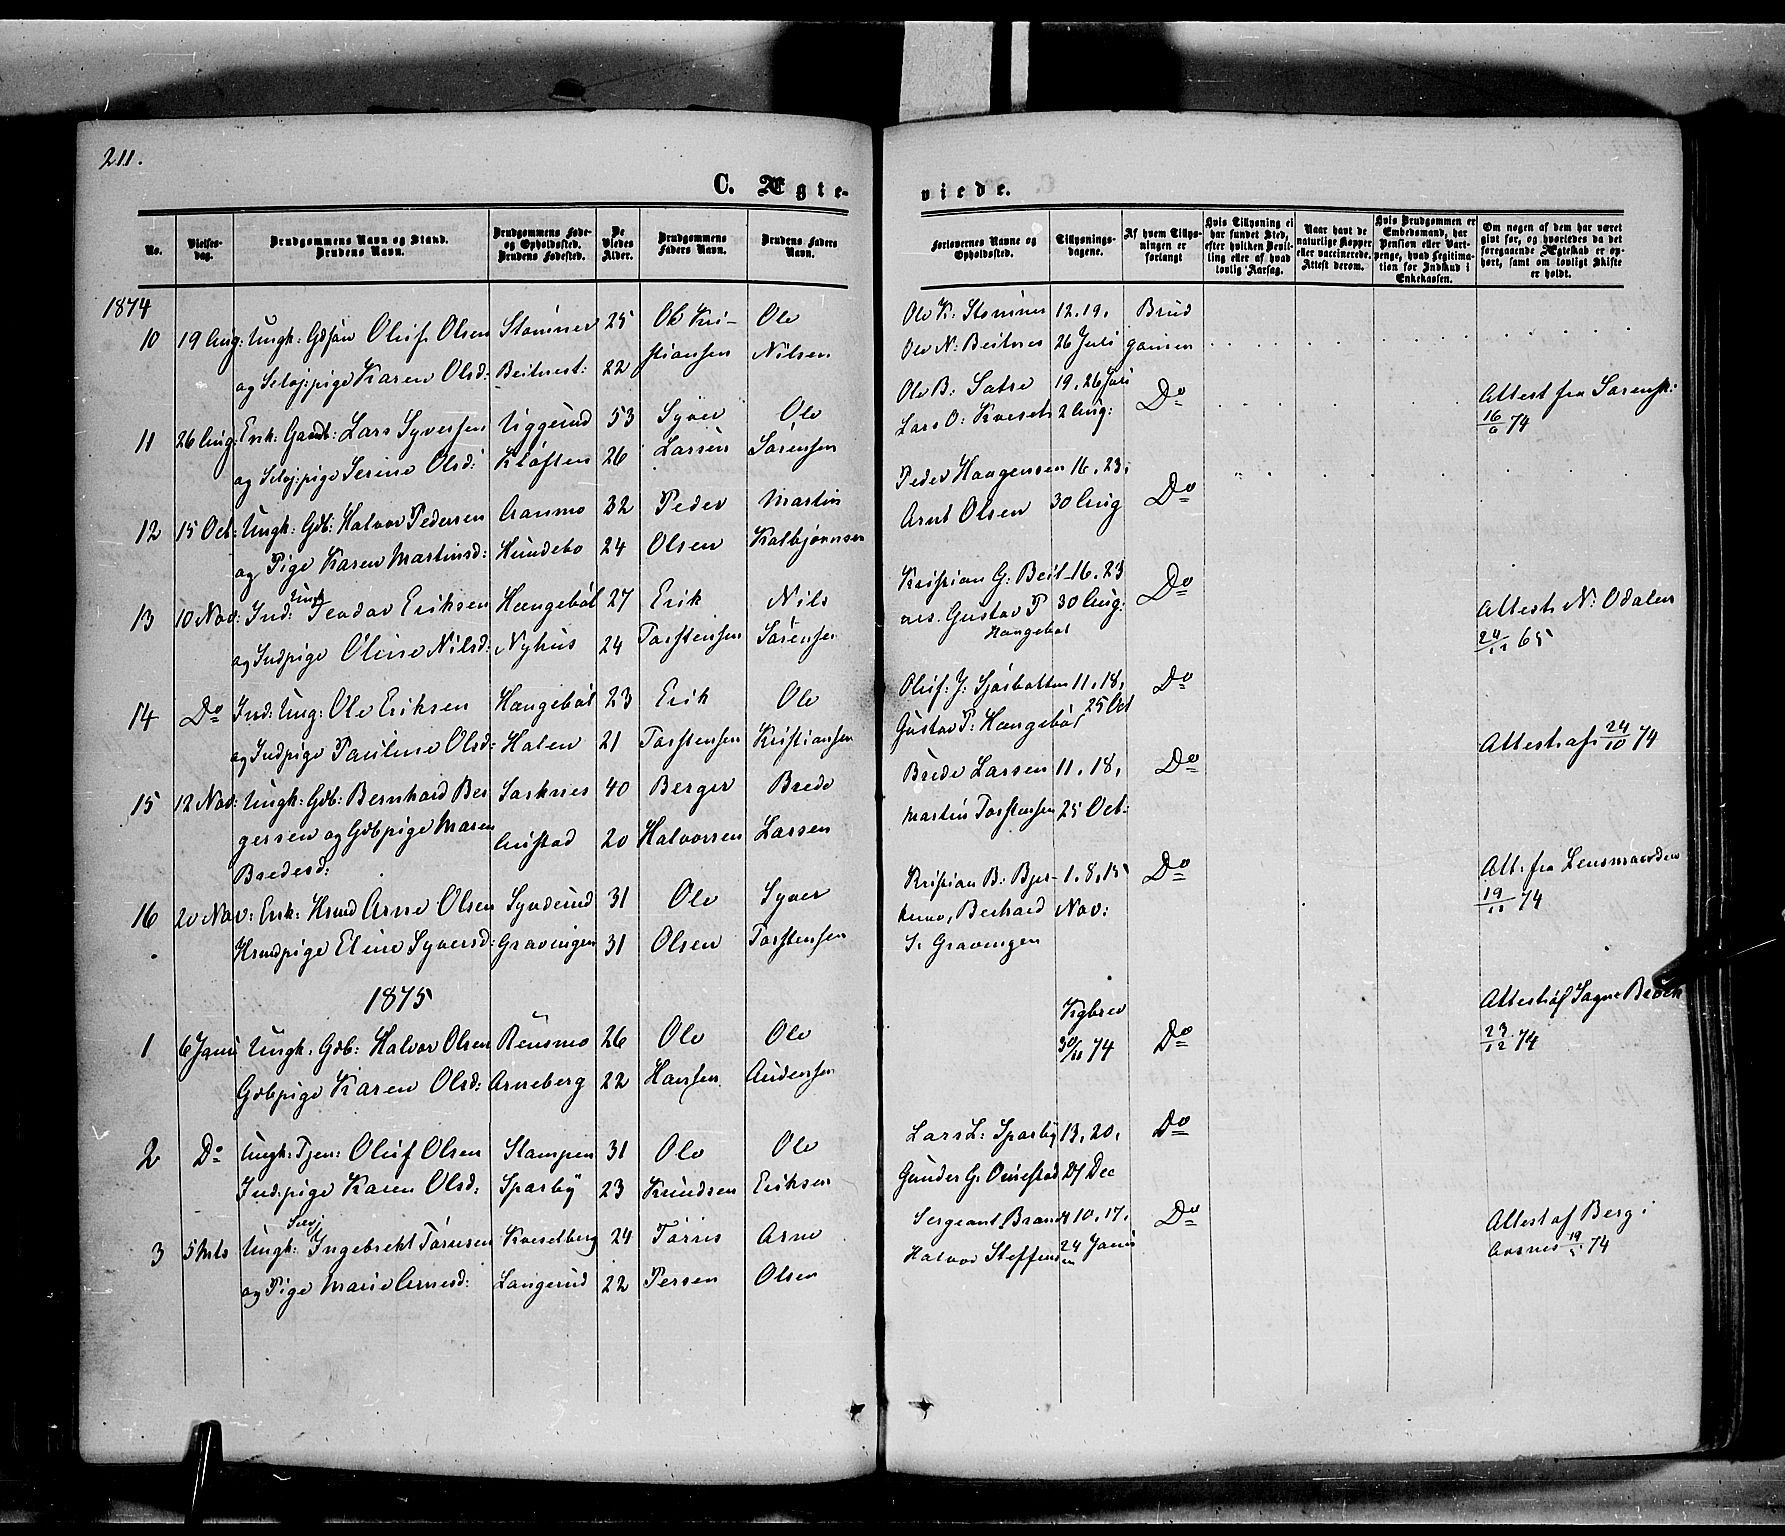 211.
C. Ægte-
viede.
No.
Vielses-
dag.
Brudgommens Navn og Stand.
Brudens Navn.
Brudgommens Føde-
og Opholdssted.
Brudens Fødested.
De
Viedes
Alder.
Brudgommens
Faders Navn.
Brudens Faders
Navn.
Forlovernes Navne og
Opholdssted.
Tillysnings-
dagene.
Af hvem Tillys-
ningen er
forlangt
Hvis Tillysning ei
har fundet Sted,
efter hvilken Bevil-
ling eller af hvad
lovlig Aarsag.
Naar havt de
naturlige Kopper
eller vaccinerede.
Attest derom.
Hvis Brudgommen er
Embedsmand, har
Pension eller Vart-
penge, hvad Legitima-
tion for Indskud i
Enkekassen.
Om nogen af dem har været
gift før, og hvorledes da det
foregaaende Ægteskab er op-
hørt, samt om lovligt Skifte
er holdt.
1874
10 19 Aug: Ungk: Gdsøn Oluf Olsen Stømner 25 Ole Kri- Ole Ole K. Stømner 12. 19. Brud
og Selvj:pige Karen Olsd: Beitnest: 22 stiansen Nilsen Ole N: Beitnes 26 Juli gommen
11 26 Aug: Enk: Gaardb: Lars Syversen Uggerud 53 Syver Ole Ole B: Satre 19. 26 Juli Do Attest fra
og Selvj:pige Serine Olsd: Kløften 26 Larsen Sørensen Lars O: Kveset 2 Aug: 74
12 15 Oct: Ungk: Gdb: Halvor Pedersen Aasmo 32 Peder Martin Peder Haagensen 16. 23. Do
og Pige Karen Martinsd: Hundebo 24 Olsen Kolbjørnsen Arnt Olsen 30 Aug
13 10 Nov: Ind: Ungk Teodor Eriksen Hængebøl 27 Erik Nils Kristian G: Beit- 16. 23 Do Attest N: Odalen
og Indpige Oline Nilsd: Nyhus 24 Torstensen Sørensen nes. Gustav P 30 Aug: 65
Hængebøl
14 Do Ind: Ung: Ole Eriksen Hængebøl 23 Erik Ole Oluf: J: Sjøsbotten 11. 18, Do
og Indpige Pauline Olsd: Holen 21 Torstensen Kristiansen Gustav P: Hængebøl 25 Oct Attest af 24/10 74
15 12 Nov: Ungk: Gdb: Bernhard Ber Sorknes 40 Berger Brede Brede Larsen 11. 18, Do
gersen og Gdbpige Maren Austad 20 Halvorsen Larsen Martin Torstensen 25 Oct:
Bredesd:
16 20 Nov: Enk: Hsmd Arne Olsen Syverud 31 Ole Syver Kristian B: Bjer- 1. 8, 15 Do Att: fra Lensmanden
Hsmdpige Eline Syversd: Gravingen 31 Olsen Torstensen kemo, Berhard Nov: 74
S: Gravingen
1875
1 6 Janu Ungk: Gdb: Halvor Olsen Rensmo 26 Ole Ole Kgbrev Do Attest af Sogne
Gdbpige Karen Olsd: Arneberg 22 Hansen Audensen 30/11 74 23/12 74
2 Do Ungk: Tjen: Oluf Olsen Stampen 31 Ole Ole Lars L: Sparby 13, 20, Do
Ind:pige Karen Olsd: Sparby 23 Knudsen Eriksen Gunder G: Ornestad 27 Dec
3 5 Mts Ungk: Selvj Ingebrekt Tørresen Kveselberg 24 Tørris Arne Sergeant Brandt 10, 17, Do Attest af Berg i
og Pige Marie Arnesd: Langerud 22 Persen Olsen Halvor Steffensen 24 Janu Aasnes 74